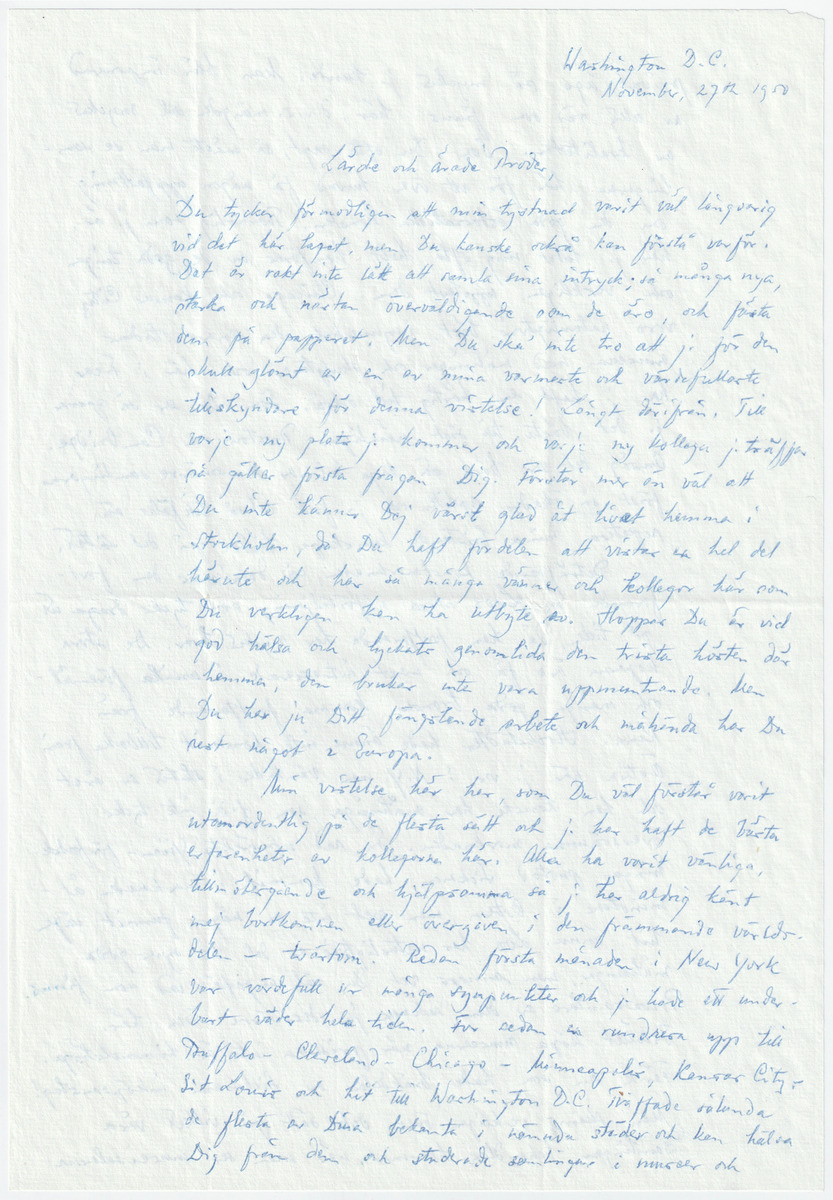 Washington D.C.
November, 27th 1950
Lärde och ärade Broder,
Du tycker förmodligen att min tystnad varit väl långvarig
vid det här laget, men Du kanske också kan förstå varför.
Det är rakt inte lätt att samla sina intryck; så många nya,
starka och nästan överväldigande som de äro, och fästa
dem på papperet. Men Du ska' inte tro att j. för den
skull glömt av en av mina varmaste och värdefullaste
tillskyndare för denna vistelse! Långt därifrån. Till
varje ny plats j. kommer och varje ny kollega j. träffar
så gäller första frågan Dig. Förstår mer än väl att
Du inte känner Dej värst glad åt livet hemma i
Stockholm, då Du haft fördelen att vistas en hel del
härute och har så många vänner och kollegor här som
Du verkligen kan ha utbyte av. Hoppas Du är vid
god hälsa och lyckats genomlida den trista hösten där
hemma, den brukar inte vara uppmuntrande. Men
Du har ju Ditt fängslande arbete och måhända har Du
rest något i Europa.
Min vistelse här har, som Du väl förstår varit
utomordentlig på de flesta sätt och j. har haft de bästa
erfarenheter av kollegorna här. Alla ha varit vänliga,
tillmötesgående och hjälpsamma så j. har aldrig känt
mej bortkommen eller övergiven i den främmande världs-
delen - tvärtom. Redan första månaden i New York
var värdefull ur många synpunkter och j. hade ett under-
bart väder hela tiden. For sedan en rundresa upp till
Buffalo - Cleveland - Chicago - Minneapolis, Kansas City -
S:t Louis och hit till Washington D.C. Träffade sålunda
de flesta av Dina bekanta i nämnda städer och kan hälsa
Dig från dem och studerade samlingar i museer och